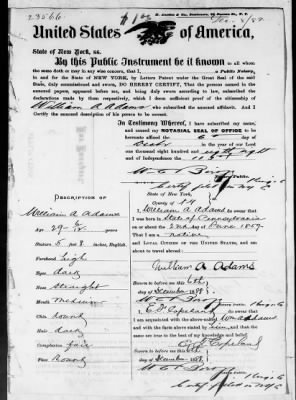 23566
$1 00
Dec. 8/88
United States of America,
State of New York, ss.
By this Public Instrument be it known to all whom
the same doth or may in any wise concern, that I,
a Public Notary,
in and for the STATE OF NEW YORK, by Letters Patent under the Great Seal of the said
State, duly commissioned and sworn, DO HEREBY CERTIFY, That the persons named in the
annexed papers, appeared before me, and being duly sworn according to law, subscribed the
declarations made by them respectively, which I deem sufficient proof of the citizenship of
William A Adams
the subscribed the annexed affidavit. And I
Certify the annexed description of his person to be correct.
In Testimony Whereof, I have hereunto subscribed my name,
and caused my NOTARIAL SEAL OF OFFICE to be
hereunto affixed the 6
day of in the year of our Lord
one thousand eight hundred and eighty eight
and of Independence the
State of New York,
County of
I William A Adams do swear
that I was born in State of Pennsylvania
on or about the 2nd day of June 1859
That I am a native
and LOYAL CITIZEN OF THE UNITED STATES, and am about
to travel abroad.
William A Adams
Sworn to before me this 6th
day of December 1888
I, E. J. Copeland do swear
that I am acquainted with the above-named Wm A Adams
and with the facts above stated by him and that the
same are true to the best of my knowledge and belief.
E. J. Copeland
Sworn to before me this 6th
day of December 1888
DESCRIPTION OF
William A Adams
Age 29
Stature 5 Feet 8 inches, English
Forehead high
Eyes dark
Nose straight
Mouth medium
Chin round
Hair dark
Complexion fair
Face round